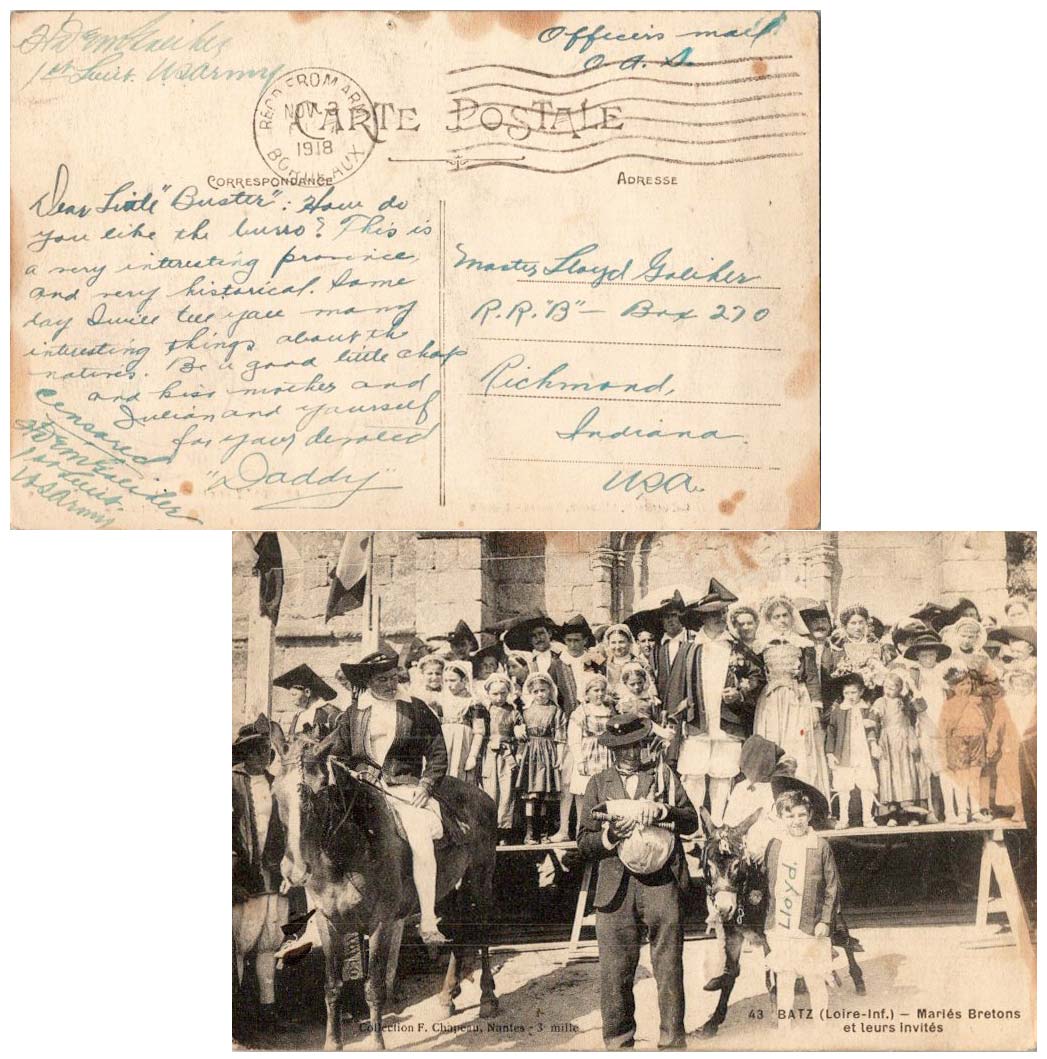 1st Lieut. US Army
Officers mail
O. A. S.
REC'D FROM ARMY
NOV 3
1918
BORDEAUX
CARTE POSTALE
CORRESPONDANCE
ADRESSE
Dear Little "Buster": How do
you like the burro? This is
a very interesting province
and very historical. Some
day I will tell you many
interesting things about the
natives. Be a good little chap
and kiss mother and
Julian and yourself
for your devoted
"Daddy"
Censored
1st Lieut.
US Army
Master Lloyd Galiher
R.R. "B" - Box 270
Richmond,
Indiana.
USA.
Lloyd.
Collection F. Chapeau, Nantes - 3 mille
43 BATZ (Loire-Inf.) — Mariés Bretons
et leurs Invités